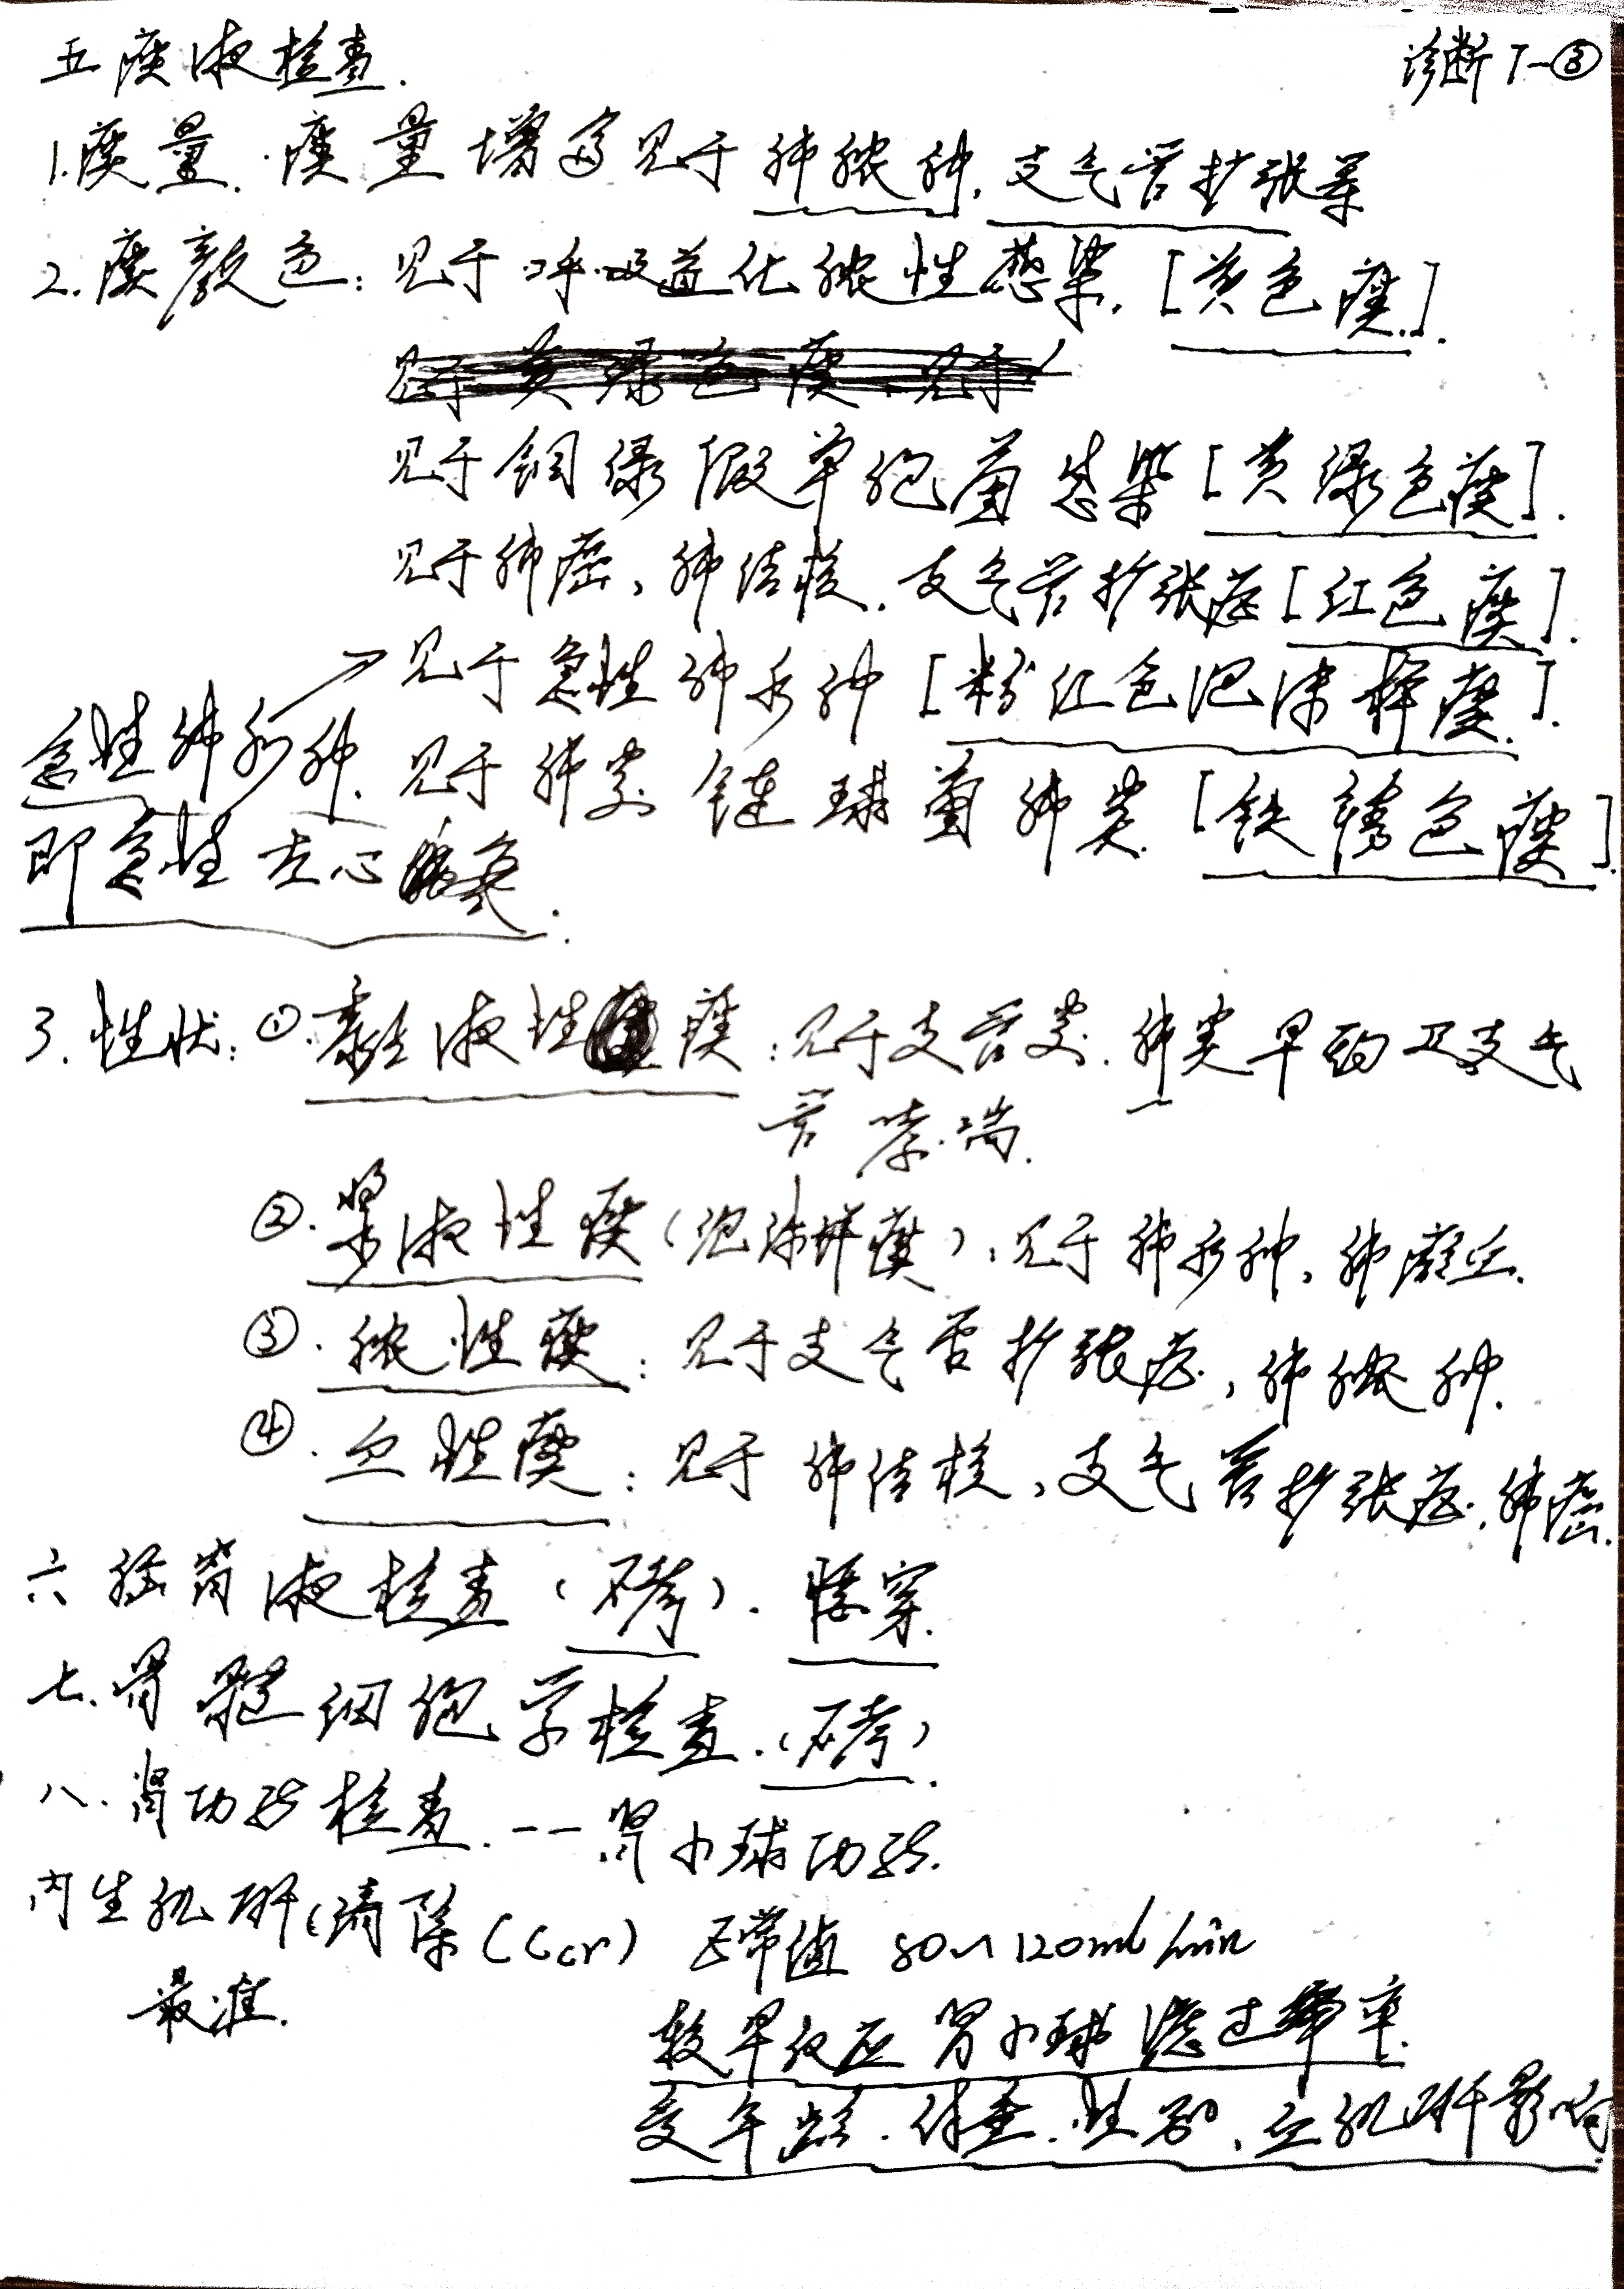 诊断 T-⑧
五 痰液检查.
1. 痰量. 痰量增多见于肺脓肿. 支气管扩张等
2. 痰颜色: 见于呼吸道化脓性感染. [黄色痰].
见于铜绿假单胞菌感染 [黄绿色痰].
见于肺癌、肺结核. 支气管扩张症 [红色痰].
见于急性肺水肿 [粉红色泡沫样痰].
急性肺水肿.
见于肺炎链球菌肺炎. [铁锈色痰]
即急性左心衰.
3. 性状: ①. 黏液性痰: 见于支管炎. 肺炎早的 及支气
管哮喘.
②. 浆液性痰 (泡沫样痰). 见于肺水肿、肺淤血.
③. 脓性痰: 见于支气管扩张症, 肺脓肿.
④. 血性痰: 见于肺结核、支气管扩张症. 肺癌.
六 脑脊液检查 (不考). 腰穿.
七. 骨髓细胞学检查. (不考).
八. 肾功能检查. -- 肾小球功能.
内生肌酐清除 (Ccr) 正常值 80~120ml/min
最准.
较早反应肾小球滤过率.
受年龄. 体重. 性别、血肌酐影响